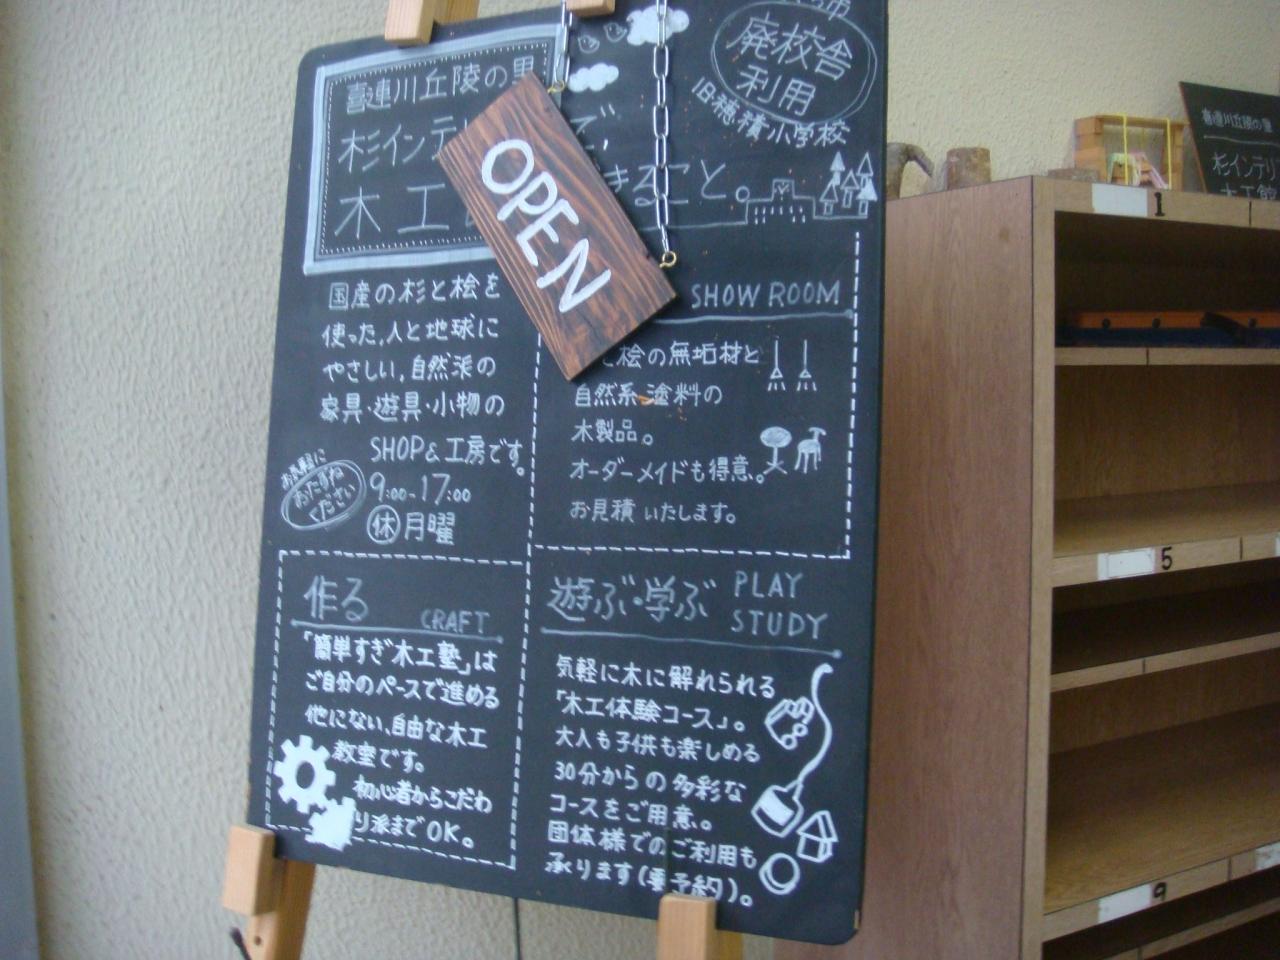 廃校舎
利用
旧穂積小学校
喜連川丘陵の里
杉インテリ
木工
で、
きること。
OPEN
国産の杉と桧を
使った、人と地球に
やさしい、自然派の
家具・遊具・小物の
SHOP&工房です。
お気軽に
おたずね
ください
9:00-17:00
休月曜
SHOW ROOM
と桧の無垢材と
自然系塗料の
木製品。
オーダーメイドも得意。
お見積いたします。
作る CRAFT
「簡単すぎ木工塾」は
ご自分のペースで進める
他にない、自由な木工
教室です。
初心者からこだわ
り派までOK。
遊ぶ・学ぶ PLAY
STUDY
気軽に木に解れられる
「木工体験コース」。
大人も子供も楽しめる
30分からの多彩な
コースをご用意。
団体様でのご利用も
承ります(要予約)。
喜連川丘陵の里
杉インテリ
木工館
1
5
9